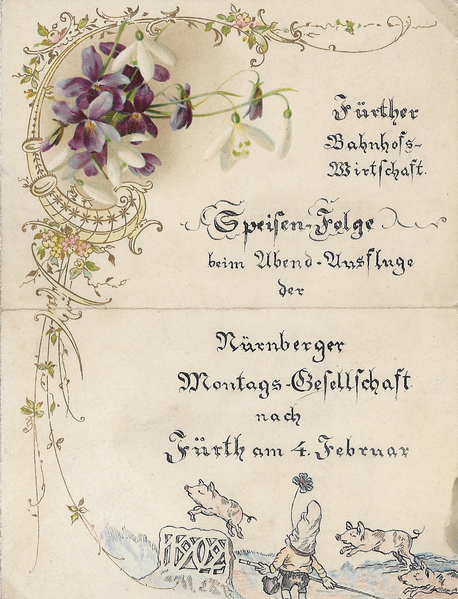 Fürther
Bahnhofs-
Wirtschaft.
Speisen-Folge
beim Abend-Ausfluge
der
Nürnberger
Montags-Gesellschaft
nach
Fürth am 4. Februar
1902